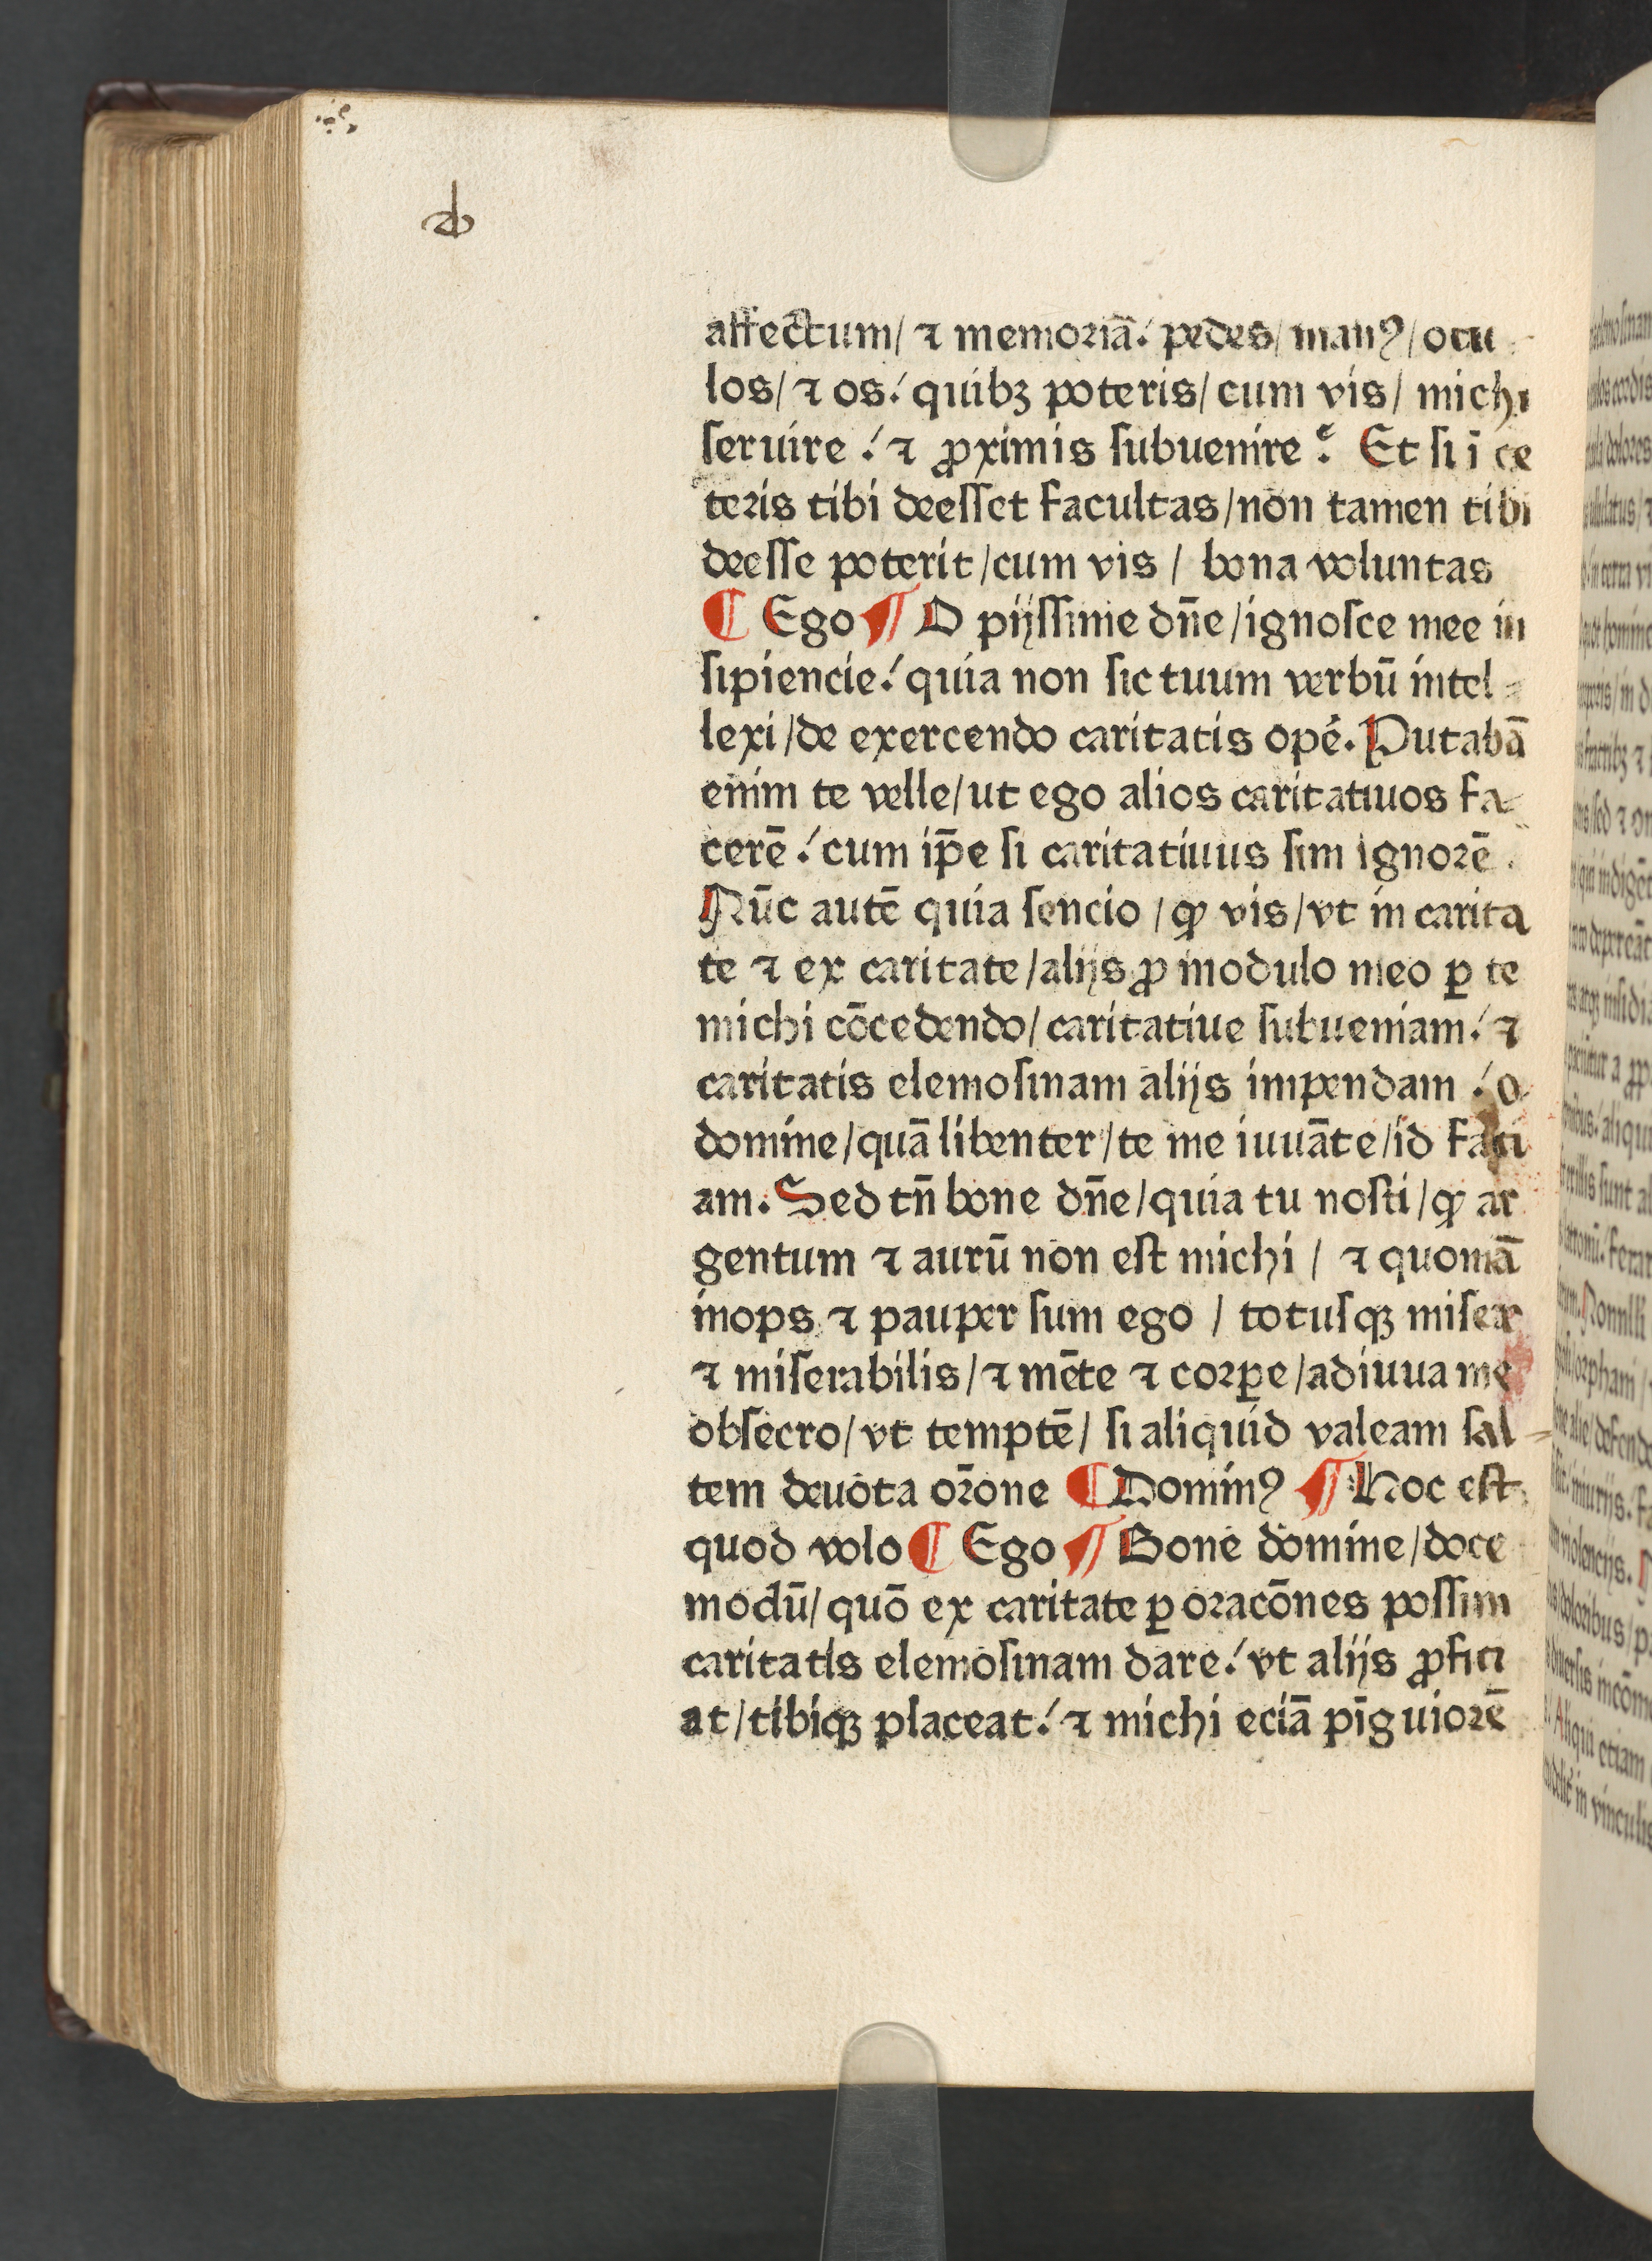 affectum/ ⁊ memoriā. pedes/ manꝰ/ ocu
los/ ⁊ os. quibꝫ poteris/ cum vis/ michi
ſeruire. ⁊ ꝓximis ſubuenire. Et ſi ī ce
teris tibi deeſſet facultas/ non tamen tibi
deeſſe poterit/ cum vis/ bona voluntas
¶ Ego ¶ O pijſſime dn̄e/ ignoſce mee in
ſipiencie. quia non ſic tuum verbū intel
lexi/ de exercendo caritatis opē. Putabā
enim te velle/ ut ego alios caritatiuos fa
cerē. cum ip̄e ſi caritatiuus ſim ignorē.
Nūc autē quia ſencio/ ꝙ vis/ vt in carita
te ⁊ ex caritate/ alijs ꝓ modulo meo ꝑ te
michi cōcedendo/ caritatiue ſubueniam. ⁊
caritatis elemoſinam alijs impendam. o
domine/ quā libenter/ te me iuuāte/ id faci
am. Sed tn̄ bone dn̄e/ quia tu noſti/ ꝙ ar
gentum ⁊ aurū non eſt michi/ ⁊ quoniā
inops ⁊ pauper ſum ego/ totuſqꝫ miſer
⁊ miſerabilis/ ⁊ mēte ⁊ corꝑe/ adiuua me
obſecro/ vt temptē/ ſi aliquid valeam ſal
tem deuota or̄one ¶ Dominꝰ ¶ Hoc eſt
quod volo ¶ Ego ¶ Bone domine/ doce
modū/ quō ex caritate ꝑ oracōnes poſſim
caritatis elemoſinam dare. vt alijs ꝓfici
at/ tibiqꝫ placeat. ⁊ michi eciā pīguiorē